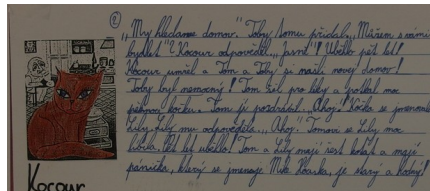 ②
„My hledáme domov." Toby tomu přidal:„Můžem s vámi
bydlet"? Kocour odpověděl:„Jasně"! Uběhlo pět let!
Kocour umřel a Tom a Toby si našli nový domov!
Toby byl nemocný! Tom šel pro léky a potkal moc
pěknou kočku. Tom ji pozdravil:„Ahoj"! Kočka se jmenovala
Lily. Lily mu odpověděla:„Ahoj." Tomovi se Lily moc
líbila. let uběhlo! Tom a Lily mají šest koťat a mají
páníčka, který se jmenuje je starý a hodný!
Kocour